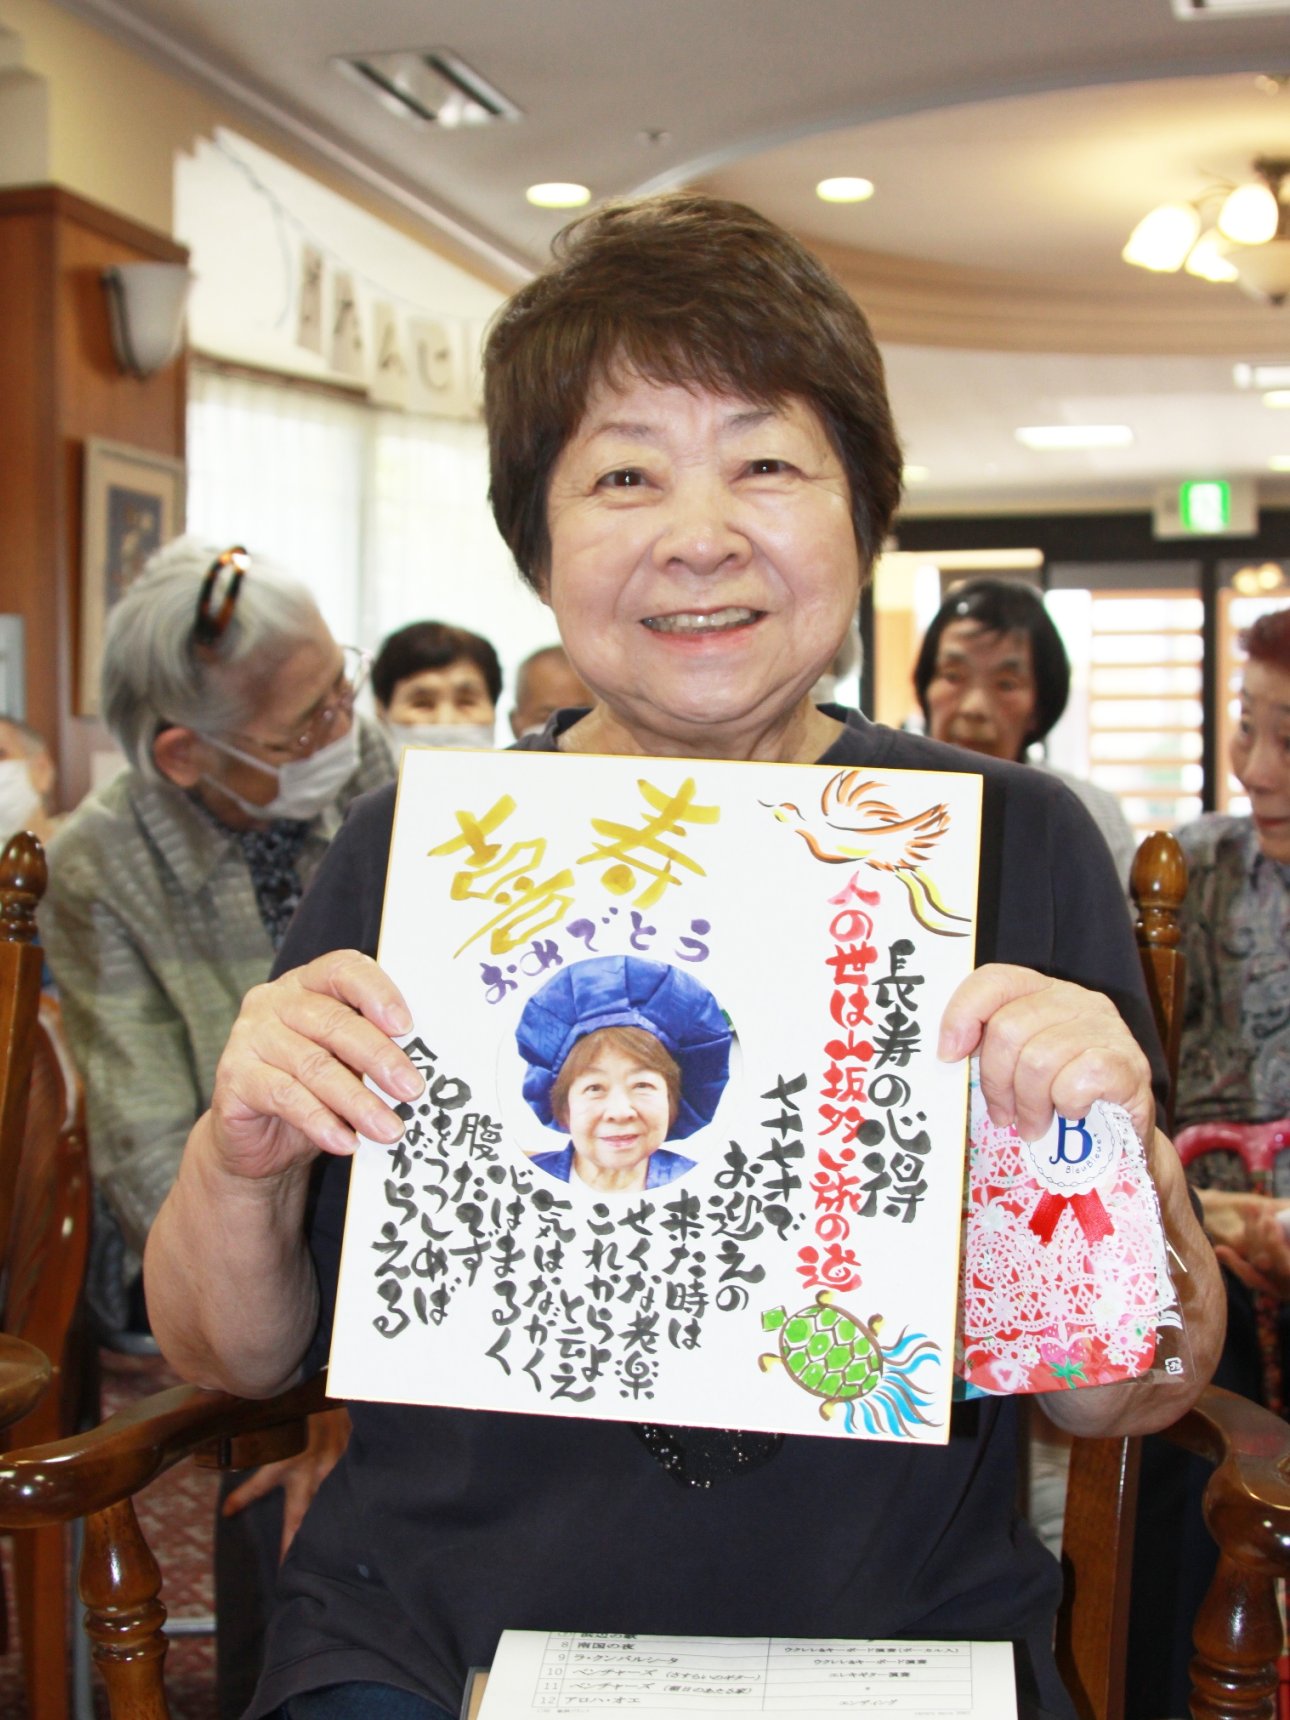 喜寿
おめでとう
長寿の心得
人の世は山坂多い旅の道
七十七才で
お迎えの
来た時は
せくな老楽
これからよ
と云え
気はながく
心はまるく
腹たてず
口をつつしめば
命ながらえる
B
BleuBleuet
たんじ
8 南国の夜 ウクレレ&キーボード演奏(ボーカル入)
9 ラ・クンパルシータ ウクレレ&キーボード演奏
10 ベンチャーズ (さすらいのギター) エレキギター演奏
11 ベンチャーズ
12 アロハ・オエ エンディング